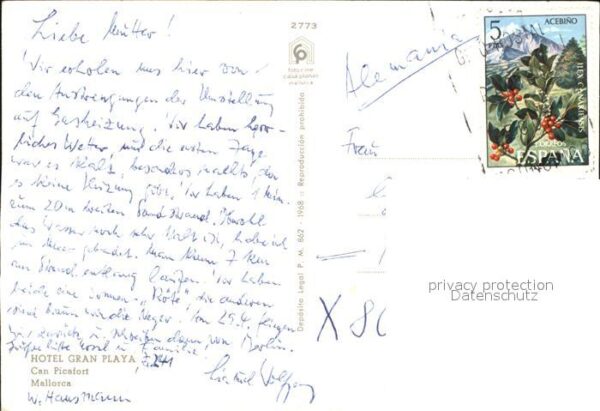 2773
Liebe Mutter!
Wir erholen uns hier von
den Anstrengungen der Umstellung
auf Gasheizung. Wir haben herr-
liches Wetter, nur die ersten Tage
war es kalt, besonders nachts, da
es keine Heizung gibt. Wir haben 1 Min.
zum 20 m breiten Sandstrand. Obwohl
das Wasser noch sehr kalt ist, habe ich
im Meer gebadet. Man kann 7 km
am Strand entlang laufen. Wir haben
beide eine "Röte" die anderen
sind braun wie die Neger. Am 29.4. fliegen
wir zurück u. schreiben dann von Berlin.
HOTEL GRAN PLAYA
Can Picafort
Mallorca
W. Hausmann
Wolfgang
Depósito Legal P. M. 862 - 1968 - Reproducción prohibida
Alemania
Frau
X 80
5
PTAS
ACEBIÑO
ILEX CANARIENSIS
CORREOS
ESPAÑA
privacy protection
Datenschutz